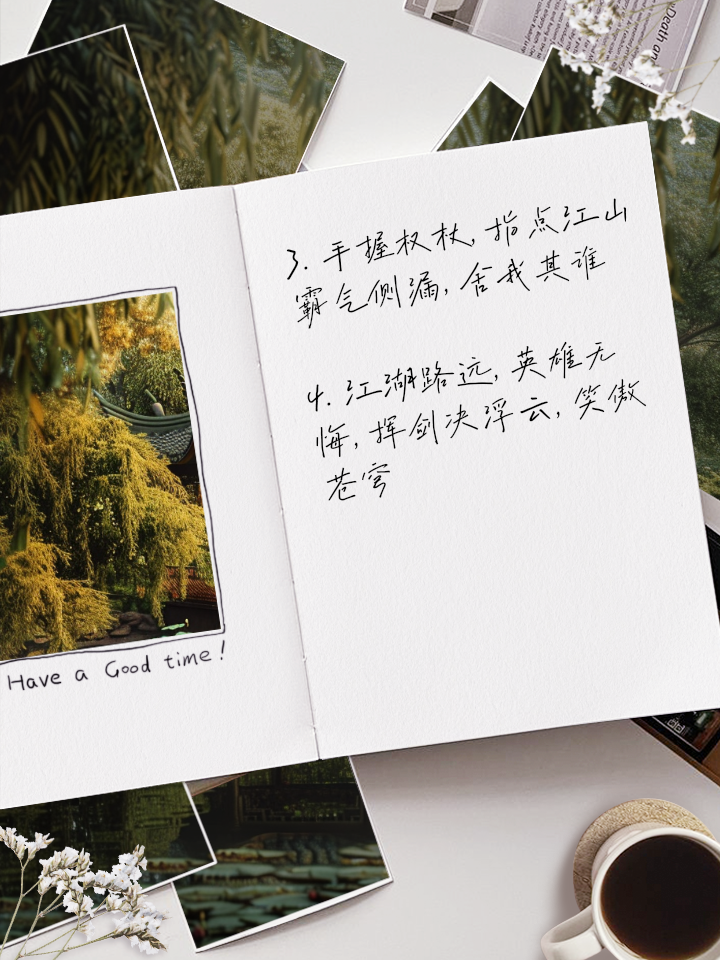 Death an
3. 手握权杖, 指点江山
霸气侧漏, 舍我其谁
4. 江湖路远, 英雄无
悔, 挥剑决浮云, 笑傲
苍穹
Have a Good time!